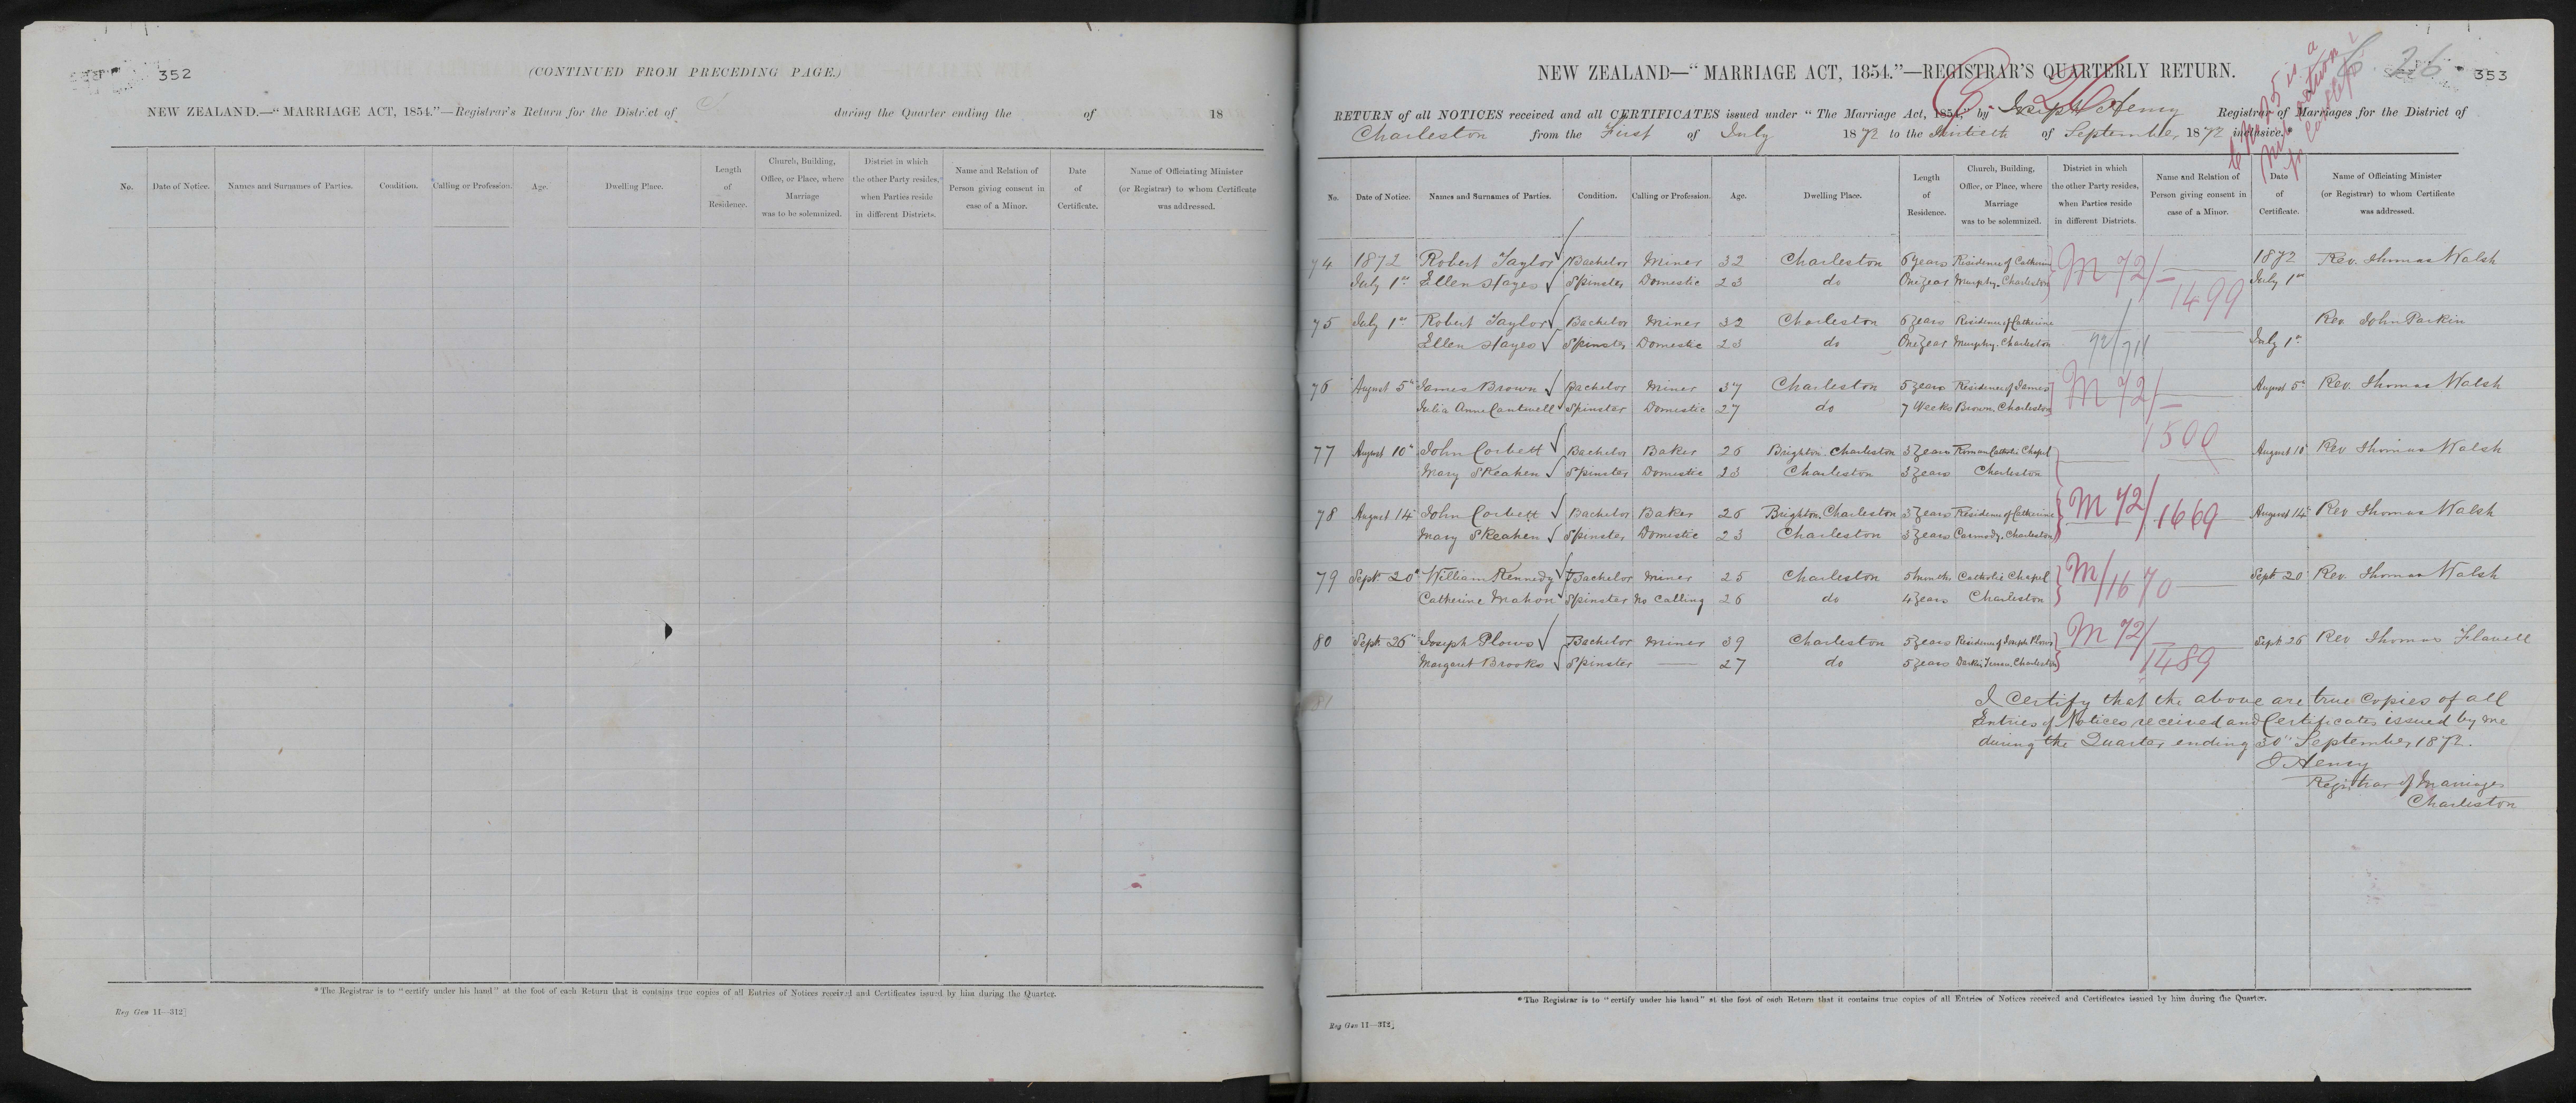 352
(CONTINUED FROM PRECEDING PAGE.)
NEW ZEALAND.—"MARRIAGE ACT, 1854."—Registrar's Return for the District of during the Quarter ending the of 18
No. Date of Notice. Names and Surnames of Parties. Condition. Calling or Profession. Age. Dwelling Place. Length of Residence. Church, Building, Office, or Place, where Marriage was to be solemnized. District in which the other Party resides, when Parties reside in different Districts. Name and Relation of Person giving consent in case of a Minor. Date of Certificate. Name of Officiating Minister (or Registrar) to whom Certificate was addressed.
*The Registrar is to "certify under his hand" at the foot of each Return that it contains true copies of all Entries of Notices received and Certificates issued by him during the Quarter.
Reg Gen 11—312]
26
353
NEW ZEALAND—"MARRIAGE ACT, 1854."—REGISTRAR'S QUARTERLY RETURN.
RETURN of all NOTICES received and all CERTIFICATES issued under "The Marriage Act, 1854," by Joseph Henry Registrar of Marriages for the District of
Charleston from the First of July 1872 to the thirtieth of September 1872 inclusive.*
No. Date of Notice. Names and Surnames of Parties. Condition. Calling or Profession. Age. Dwelling Place. Length of Residence. Church, Building, Office, or Place, where Marriage was to be solemnized. District in which the other Party resides, when Parties reside in different Districts. Name and Relation of Person giving consent in case of a Minor. Date of Certificate. Name of Officiating Minister (or Registrar) to whom Certificate was addressed.
74 1872 Robert Taylor Bachelor Miner 32 Charleston 6 years Residence of Catherine M 72/ 1872 Rev. Thomas Walsh
July 1st Ellen Hayes Spinster Domestic 23 do One year Murphy. Charleston 1499 July 1st
75 July 1st Robert Taylor Bachelor Miner 32 Charleston 6 years Residence of Catherine Rev. John Parkin
Ellen Hayes Spinster Domestic 23 do One year Murphy. Charleston 72/711 July 1st
76 August 5th James Brown Bachelor Miner 37 Charleston 5 years Residence of James M 72/ August 5th Rev. Thomas Walsh
Julia Anne Cantwell Spinster Domestic 27 do 7 Weeks Brown. Charleston 1500
77 August 10th John Corbett Bachelor Baker 26 Brighton. Charleston 3 years Roman Catholic Chapel August 10th Rev Thomas Walsh
Mary Skeahen Spinster Domestic 23 Charleston 3 years Charleston
78 August 14th John Corbett Bachelor Baker 26 Brighton. Charleston 3 years Residence of Catherine M 72/1669 August 14th Rev Thomas Walsh
Mary Skeahen Spinster Domestic 23 Charleston 3 years Carmody. Charleston
79 Sept 20th William Kennedy Bachelor Miner 25 Charleston 5 months Catholic Chapel M/1670 Sept 20 Rev. Thomas Walsh
Catherine Mahon Spinster No Calling 26 do 4 years Charleston
80 Sept 26th Joseph Plows Bachelor Miner 39 Charleston 5 years Residence of Joseph Plows M 72/ Sept 26 Rev Thomas Flavell
Margaret Brooks Spinster — 27 do 5 years Charleston 1489
81
I certify that the above are true copies of all
Entries of Notices received and Certificates issued by me
during the Quarter ending 30th September 1872.
J Henry
Registrar of Marriages
Charleston
*The Registrar is to "certify under his hand" at the foot of each Return that it contains true copies of all Entries of Notices received and Certificates issued by him during the Quarter.
Reg Gen 11—312]